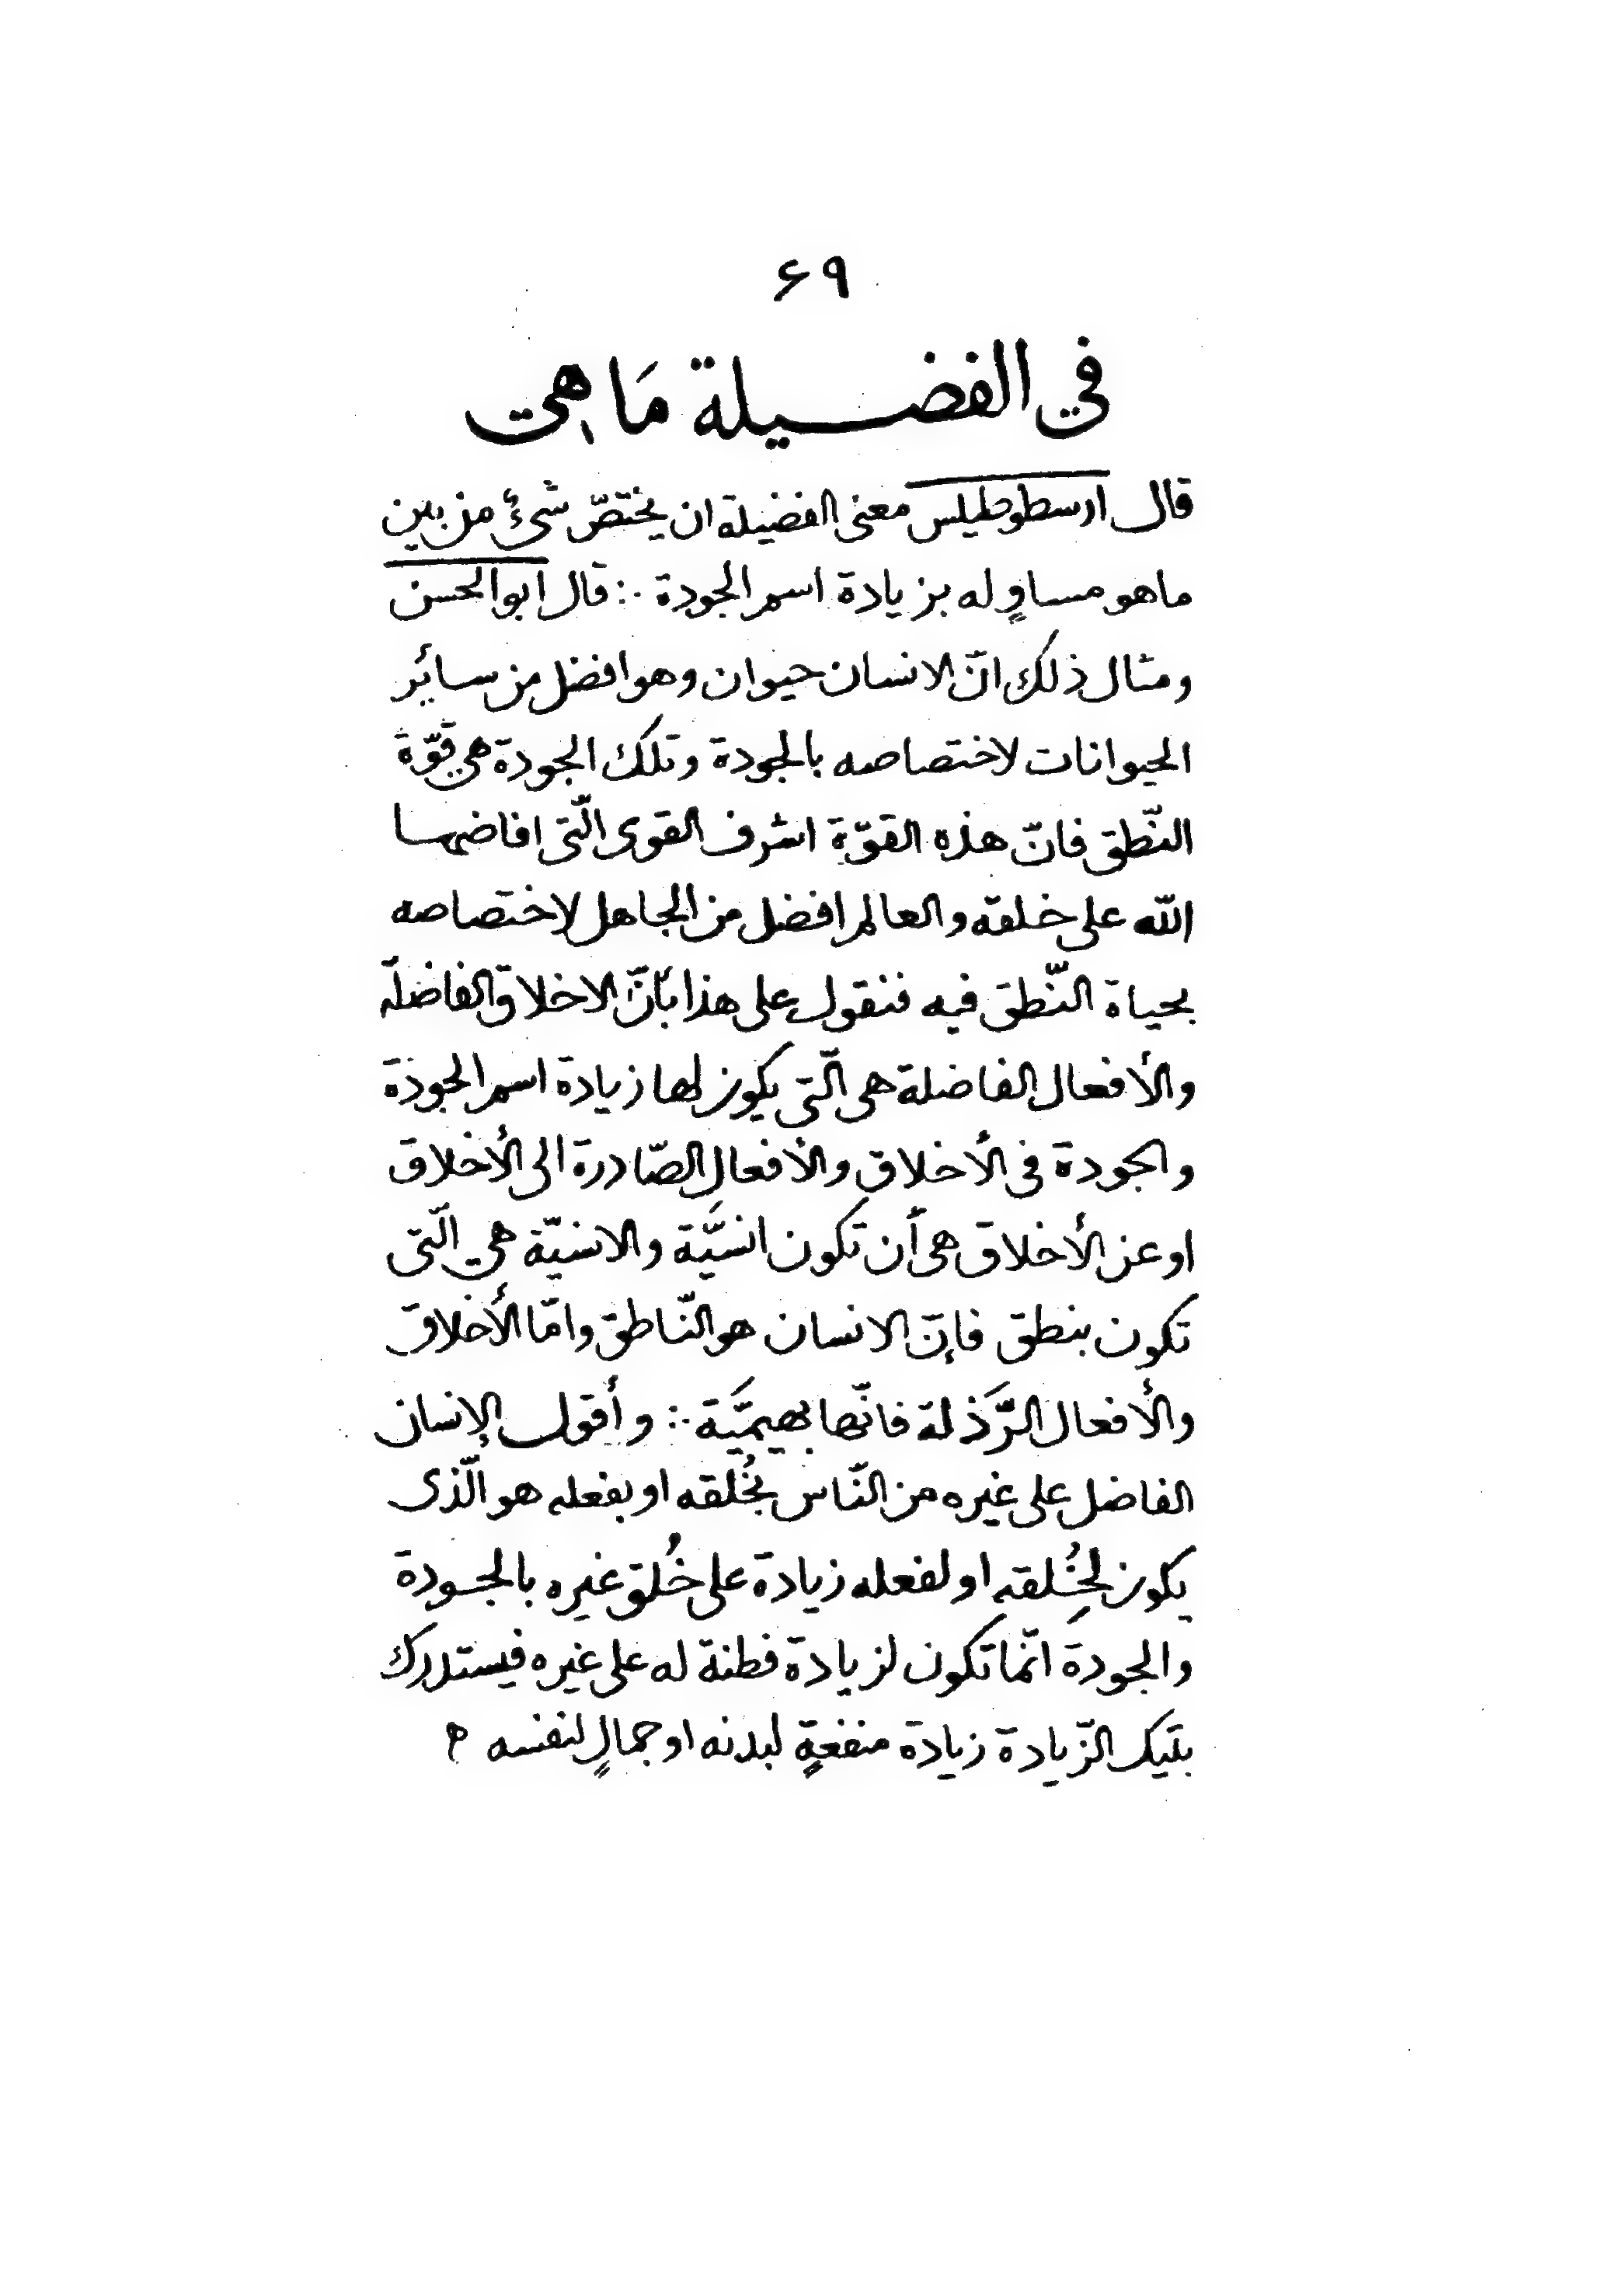 ۶۹
في الفضيلة مَا هي
قال ارسطوطيلس معنى الفضيلة ان يختصّ شىءٌ من بين
ما هو مساوٍ له بزيادة اسم الجودة ∴ قال ابوالحسن
ومثال ذلك انّ الانسان حيوان وهو افضل من سائر
الحيوانات لاختصاصه بالجودة وتلك الجودة هي قوّة
النّطق فانّ هذه القوّة اشرف القوى الّتى افاضها
اللّه على خلقه والعالم افضل من الجاهل لاختصاصه
بحياة النّطق فيه فنقول على هذا بأنّ الاخلاق الفاضلة
والأفعال الفاضلة هى الّتى يكون لها زيادة اسم الجودة
والجودة فى الأخلاق والأفعال الصّادرة الى الأخلاق
او عن الأخلاق هى أن تكون انسيَّة والانسيّة هي الّتى
تكون بنطق فإنّ الانسان هو النّاطق وامّا الأخلاق
والأفعال الرَّذلة فانّها بهيميَّة ∴ وأقول الإنسان
الفاضل على غيره من النّاس بخُلقه او بفعله هو الّذى
يكون لخُلقه او لفعله زيادة على خُلق غيره بالجودة
والجودة انّما تكون لزيادة فطنة له على غيره فيستدرك
بتيك الزّيادة زيادة منفعةٍ لبدنه او جمالٍ لنفسه